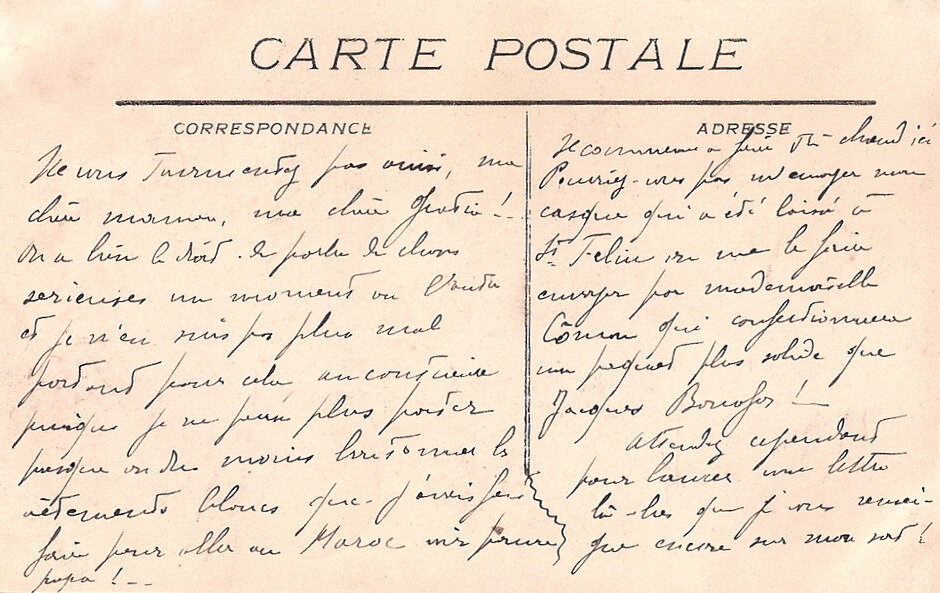 CARTE POSTALE
CORRESPONDANCE
Ne vous Tourmentez pas ainsi, ma
chère maman, ma chère
on a bien le droit de parler de choses
serieuses un moment ou l'autre
et je n'en suis pas plus mal
portant pour cela au contraire
puisque je ne puis plus porter
presque ou du moins boutonner les
vêtements blancs que j'avais fait
faire pour aller au Maroc voir pauvre
papa ! --
ADRESSE
Il commence a faire très chaud ici
Pourriez-vous pas m'envoyer mon
casque qui a été laissé à
St Feliu ou me le faire
envoyer par mademoiselle
qui confectionnera
un paquet plus solide que
Jacques !
Attendez cependant
pour lancer une lettre
là-bas que je vous rensei-
gne encore sur mon sort !